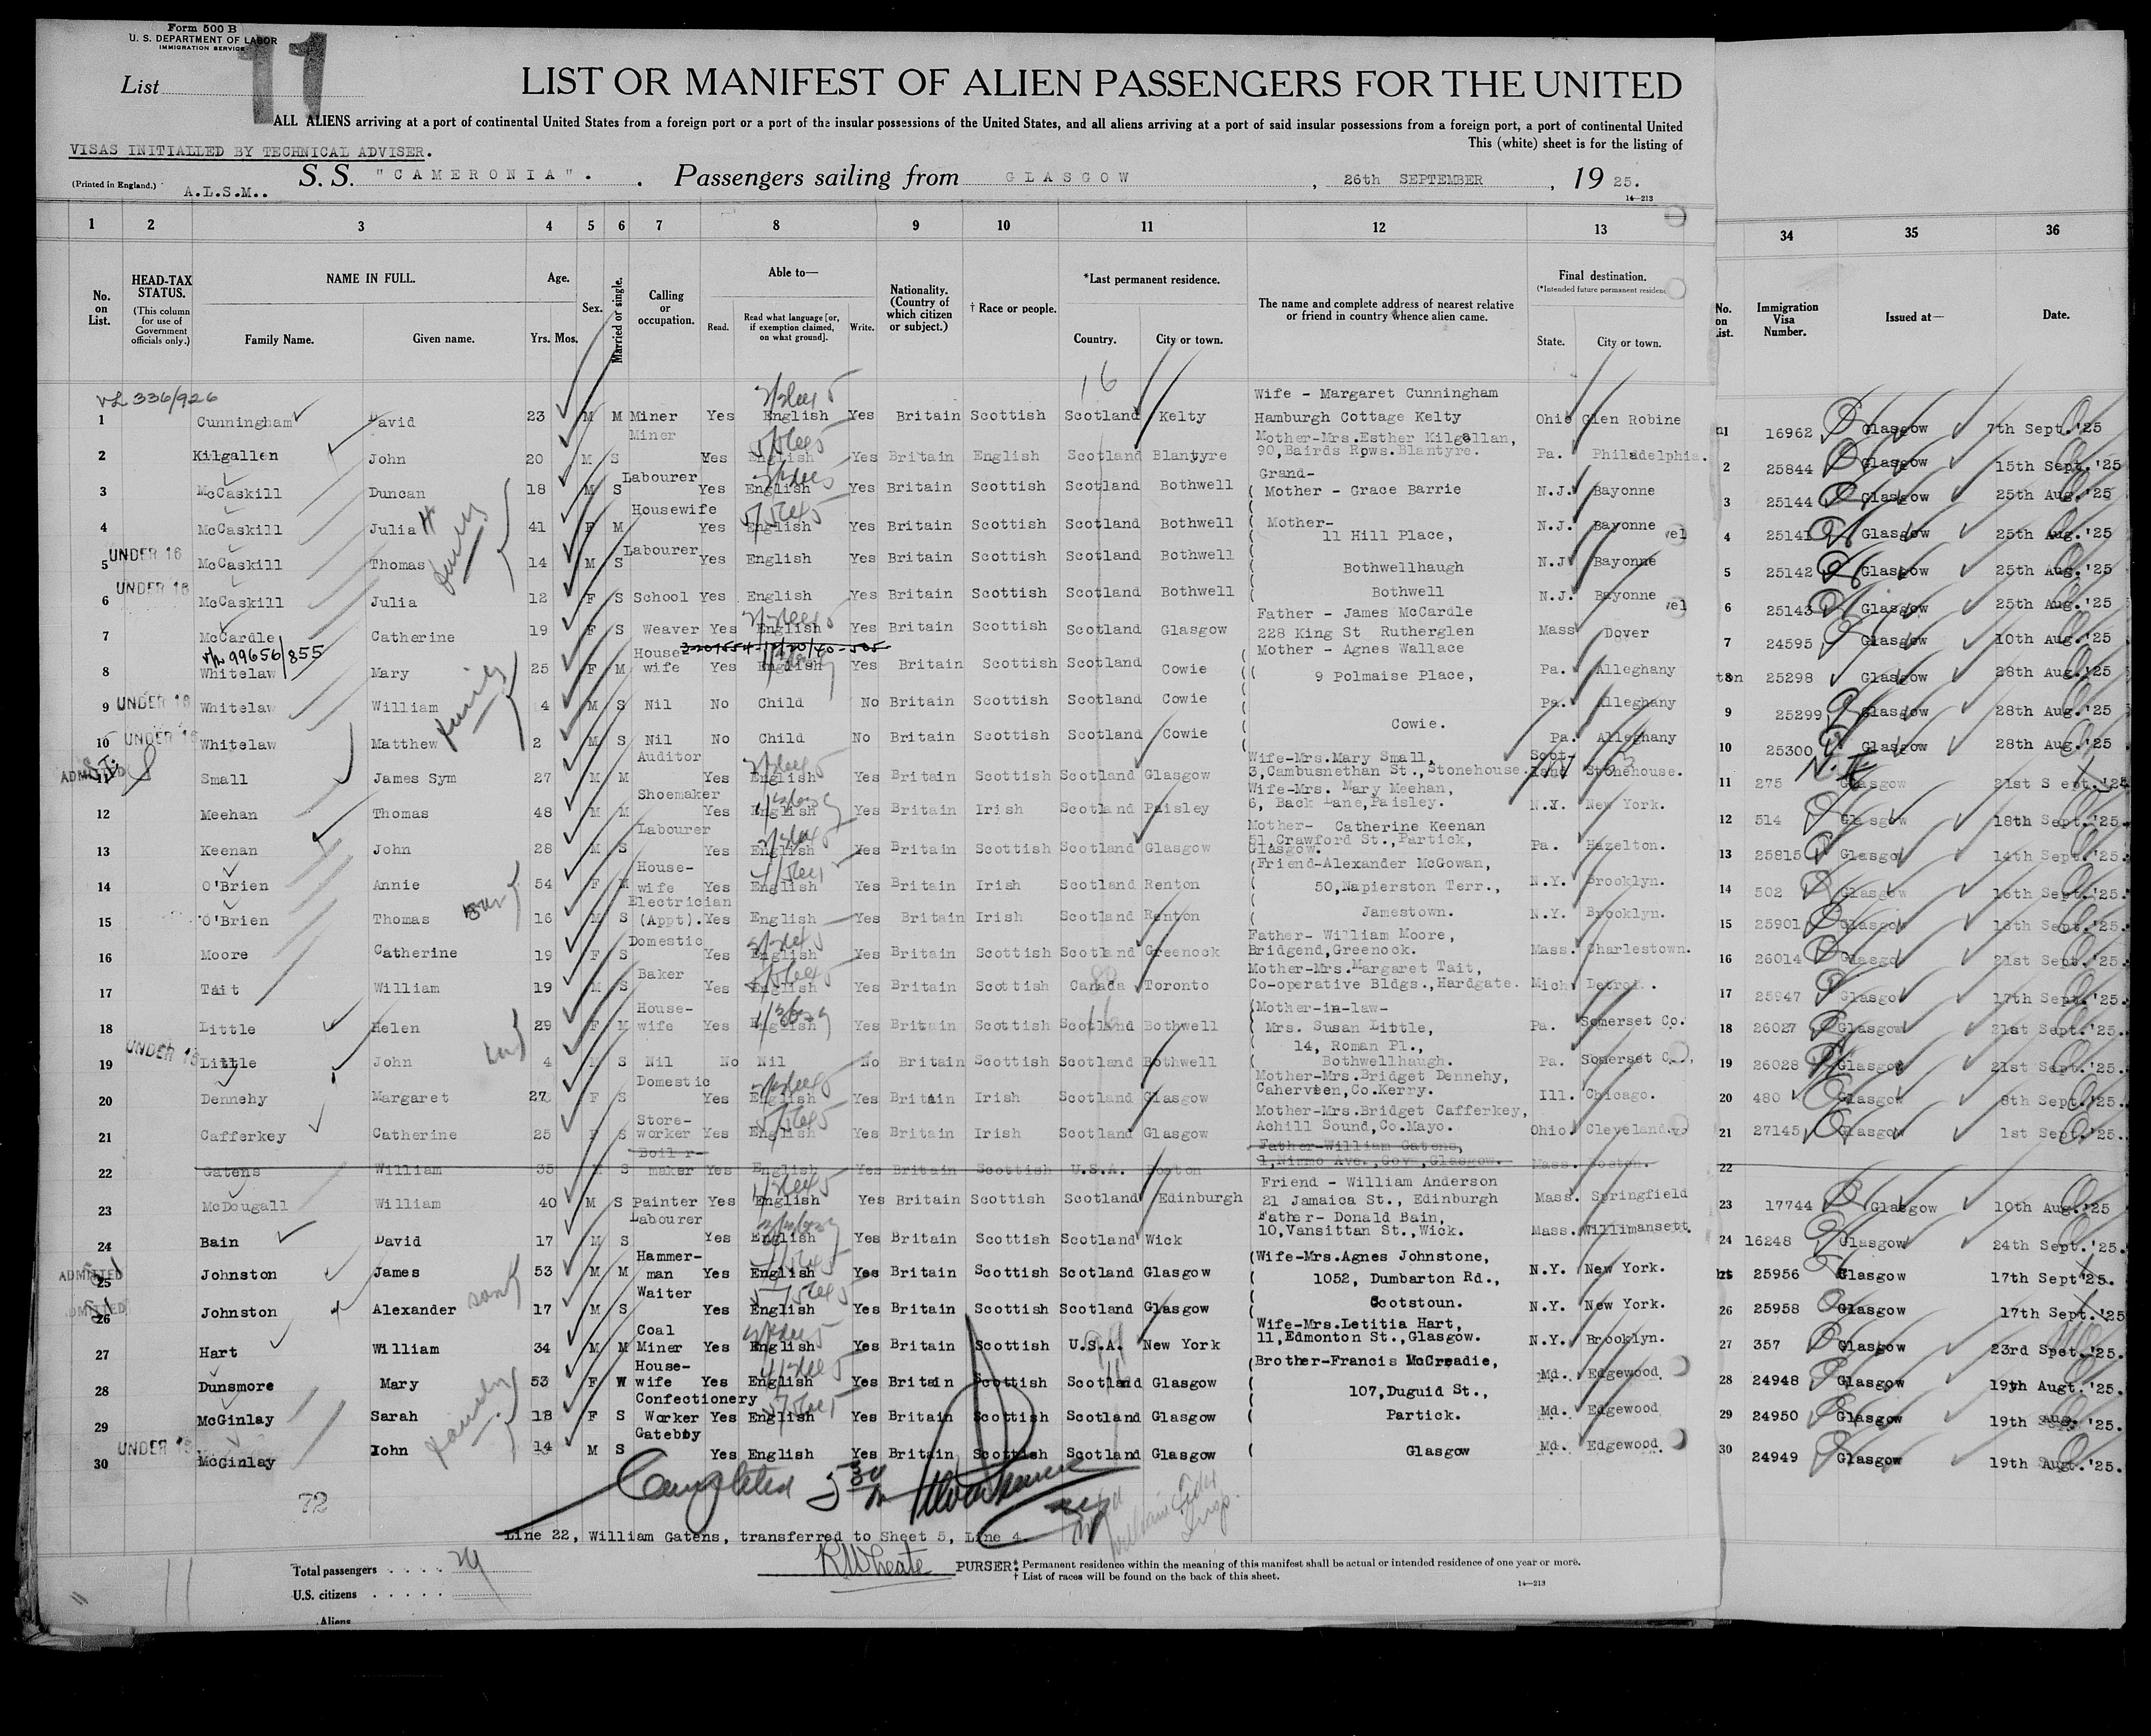 Form 500 B
U. S. DEPARTMENT OF LABOR
IMMIGRATION SERVICE
11
List
LIST OR MANIFEST OF ALIEN PASSENGERS FOR THE UNITED
ALL ALIENS arriving at a port of continental United States from a foreign port or a port of the insular possessions of the United States, and all aliens arriving at a port of said insular possessions from a foreign port, a port of continental United
This (white) sheet is for the listing of
VISAS INITIALLED BY TECHNICAL ADVISER.
(Printed in England.) A.L.S.M.. S. S. "CAMERONIA". Passengers sailing from GLASGOW, 26th SEPTEMBER, 19 25.
14—213
1 2 3 4 5 6 7 8 9 10 11 12 13 34 35 36
No. on List.
HEAD-TAX STATUS.
(This column for use of Government officials only.)
NAME IN FULL.
Family Name. Given name.
Age.
Yrs. Mos.
Sex.
Married or single.
Calling or occupation.
Able to—
Read. Read what language [or, if exemption claimed, on what ground]. Write.
Nationality. (Country of which citizen or subject.)
† Race or people.
*Last permanent residence.
Country. City or town.
The name and complete address of nearest relative or friend in country whence alien came.
Final destination.
(*Intended future permanent residence
State. City or town.
Immigration Visa Number.
Issued at—
Date.
VL 336/926
16
1 Cunningham David 23 M M Miner Yes English Yes Britain Scottish Scotland Kelty Wife - Margaret Cunningham Hamburgh Cottage Kelty Ohio Glen Robine 1 16962 Glasgow 7th Sept.'25
2 Kilgallen John 20 M S Miner Yes English Yes Britain English Scotland Blantyre Mother-Mrs.Esther Kilgallan, 90,Bairds Rows.Blantyre. Pa. Philadelphia. 2 25844 Glasgow 15th Sept.'25
3 McCaskill Duncan 18 M S Labourer Yes English Yes Britain Scottish Scotland Bothwell Grand- Mother - Grace Barrie N.J. Bayonne 3 25144 Glasgow 25th Aug.'25
4 McCaskill Julia H 41 F M Housewife Yes English Yes Britain Scottish Scotland Bothwell Mother- 11 Hill Place, N.J. Bayonne 4 25141 Glasgow 25th Aug.'25
UNDER 16
5 McCaskill Thomas 14 M S Labourer Yes English Yes Britain Scottish Scotland Bothwell Bothwellhaugh N.J. Bayonne 5 25142 Glasgow 25th Aug.'25
UNDER 16
6 McCaskill Julia 12 F S School Yes English Yes Britain Scottish Scotland Bothwell Bothwell N.J. Bayonne 6 25143 Glasgow 25th Aug.'25
family
7 McCardle Catherine 19 F S Weaver Yes English Yes Britain Scottish Scotland Glasgow Father - James McCardle 228 King St Rutherglen Mass Dover 7 24595 Glasgow 10th Aug.'25
99656/855
8 Whitelaw Mary 25 F M House wife Yes English Yes Britain Scottish Scotland Cowie Mother - Agnes Wallace 9 Polmaise Place, Pa. Alleghany 8 25298 Glasgow 28th Aug.'25
UNDER 16
9 Whitelaw William 4 M S Nil No Child No Britain Scottish Scotland Cowie Pa. Alleghany 9 25299 Glasgow 28th Aug.'25
UNDER 16
10 Whitelaw Matthew 2 M S Nil No Child No Britain Scottish Scotland Cowie Cowie. Pa. Alleghany 10 25300 Glasgow 28th Aug.'25
family
ADMITTED
11 Small James Sym 27 M M Auditor Yes English Yes Britain Scottish Scotland Glasgow Wife-Mrs.Mary Small, 3,Cambusnethan St.,Stonehouse. Scot- land Stonehouse. 11 275 Glasgow 21st S ept.'25
12 Meehan Thomas 48 M M Shoemaker Yes English Yes Britain Irish Scotland Paisley Wife-Mrs. Mary Meehan, 6, Back Lane,Paisley. N.Y. New York. 12 514 Glasgow 18th Sept.'25.
13 Keenan John 28 M S Labourer Yes English Yes Britain Scottish Scotland Glasgow Mother- Catherine Keenan 51,Crawford St.,Partick, Glasgow. Pa. Hazelton. 13 25815 Glasgow 14th Sept.'25.
14 O'Brien Annie 54 F M House- wife Yes English Yes Britain Irish Scotland Renton Friend-Alexander McGowan, 50,Napierston Terr., N.Y. Brooklyn. 14 502 Glasgow 16th Sept.'25.
15 O'Brien Thomas 16 M S Electrician (Appt). Yes English Yes Britain Irish Scotland Renton Jamestown. N.Y. Brooklyn. 15 25901 Glasgow 16th Sept.'25.
16 Moore Catherine 19 F S Domestic Yes English Yes Britain Scottish Scotland Greenock Father- William Moore, Bridgend,Greenock. Mass. Charlestown. 16 26014 Glasgow 21st Sept.'25.
17 Tait William 19 M S Baker Yes English Yes Britain Scottish Canada Toronto Mother-Mrs.Margaret Tait, Co-operative Bldgs.,Hardgate. Mich Detroi. 17 25947 Glasgow 17th Sept.'25.
18 Little Helen 29 F M House- wife Yes English Yes Britain Scottish Scotland Bothwell Mother-in-law- Mrs. Susan Little, Pa. Somerset Co. 18 26027 Glasgow 21st Sept.'25.
UNDER 16
19 Little John 4 M S Nil No Nil No Britain Scottish Scotland Bothwell 14, Roman Pl., Bothwellhaugh. Pa. Somerset C., 19 26028 Glasgow 21st Sept.'25.
20 Dennehy Margaret 27 F S Domestic Yes English Yes Britain Irish Scotland Glasgow Mother-Mrs.Bridget Dennehy, Caherveen,Co.Kerry. Ill. Chicago. 20 480 Glasgow 8th Sept.'25.
21 Cafferkey Catherine 25 F S Store- worker Yes English Yes Britain Irish Scotland Glasgow Mother-Mrs.Bridget Cafferkey, Achill Sound,Co.Mayo. Ohio Cleveland. 21 27145 Glasgow 1st Sept.'25.
22 Gatens William 35 M S Boil r- maker Yes English Yes Britain Scottish U.S.A. Boston Father-William Gatens, 1,Nimmo Ave.,Gov.,Glasgow. Mass. Boston. 22
23 McDougall William 40 M S Painter Yes English Yes Britain Scottish Scotland Edinburgh Friend - William Anderson 21 Jamaica St., Edinburgh Mass. Springfield 23 17744 Glasgow 10th Aug.'25
24 Bain David 17 M S Labourer Yes English Yes Britain Scottish Scotland Wick Father- Donald Bain, 10,Vansittan St.,Wick. Mass. Willimansett. 24 16248 Glasgow 24th Sept.'25.
ADMITTED
25 Johnston James 53 M M Hammer- man Yes English Yes Britain Scottish Scotland Glasgow Wife-Mrs.Agnes Johnstone, 1052, Dumbarton Rd., N.Y. New York. 25956 Glasgow 17th Sept'25.
ADMITTED
26 Johnston Alexander son 17 M S Waiter Yes English Yes Britain Scottish Scotland Glasgow Scotstoun. N.Y. New York. 26 25958 Glasgow 17th Sept.'25
27 Hart William 34 M M Coal Miner Yes English Yes Britain Scottish U.S.A. New York Wife-Mrs.Letitia Hart, 11,Edmonton St.,Glasgow. N.Y. Brooklyn. 27 357 Glasgow 23rd Spet.'25.
28 Dunsmore Mary 53 F W House- wife Yes English Yes Britain Scottish Scotland Glasgow Brother-Francis McCreadie, 107,Duguid St., Md. Edgewood 28 24948 Glasgow 19th Augt.'25.
29 McGinlay Sarah 18 F S Confectionery Worker Yes English Yes Britain Scottish Scotland Glasgow Partick. Md. Edgewood 29 24950 Glasgow 19th Aug.'25.
UNDER 16
30 McGinlay John 14 M S Gateboy Yes English Yes Britain Scottish Scotland Glasgow Glasgow Md. Edgewood. 30 24949 Glasgow 19th Augt.'25.
family
Completed
72
Line 22, William Gatens, transferred to Sheet 5, Line 4
PURSER.
Total passengers . . . . 29
U.S. citizens . . . . .
Aliens
* Permanent residence within the meaning of this manifest shall be actual or intended residence of one year or more.
† List of races will be found on the back of this sheet.
14—213
11